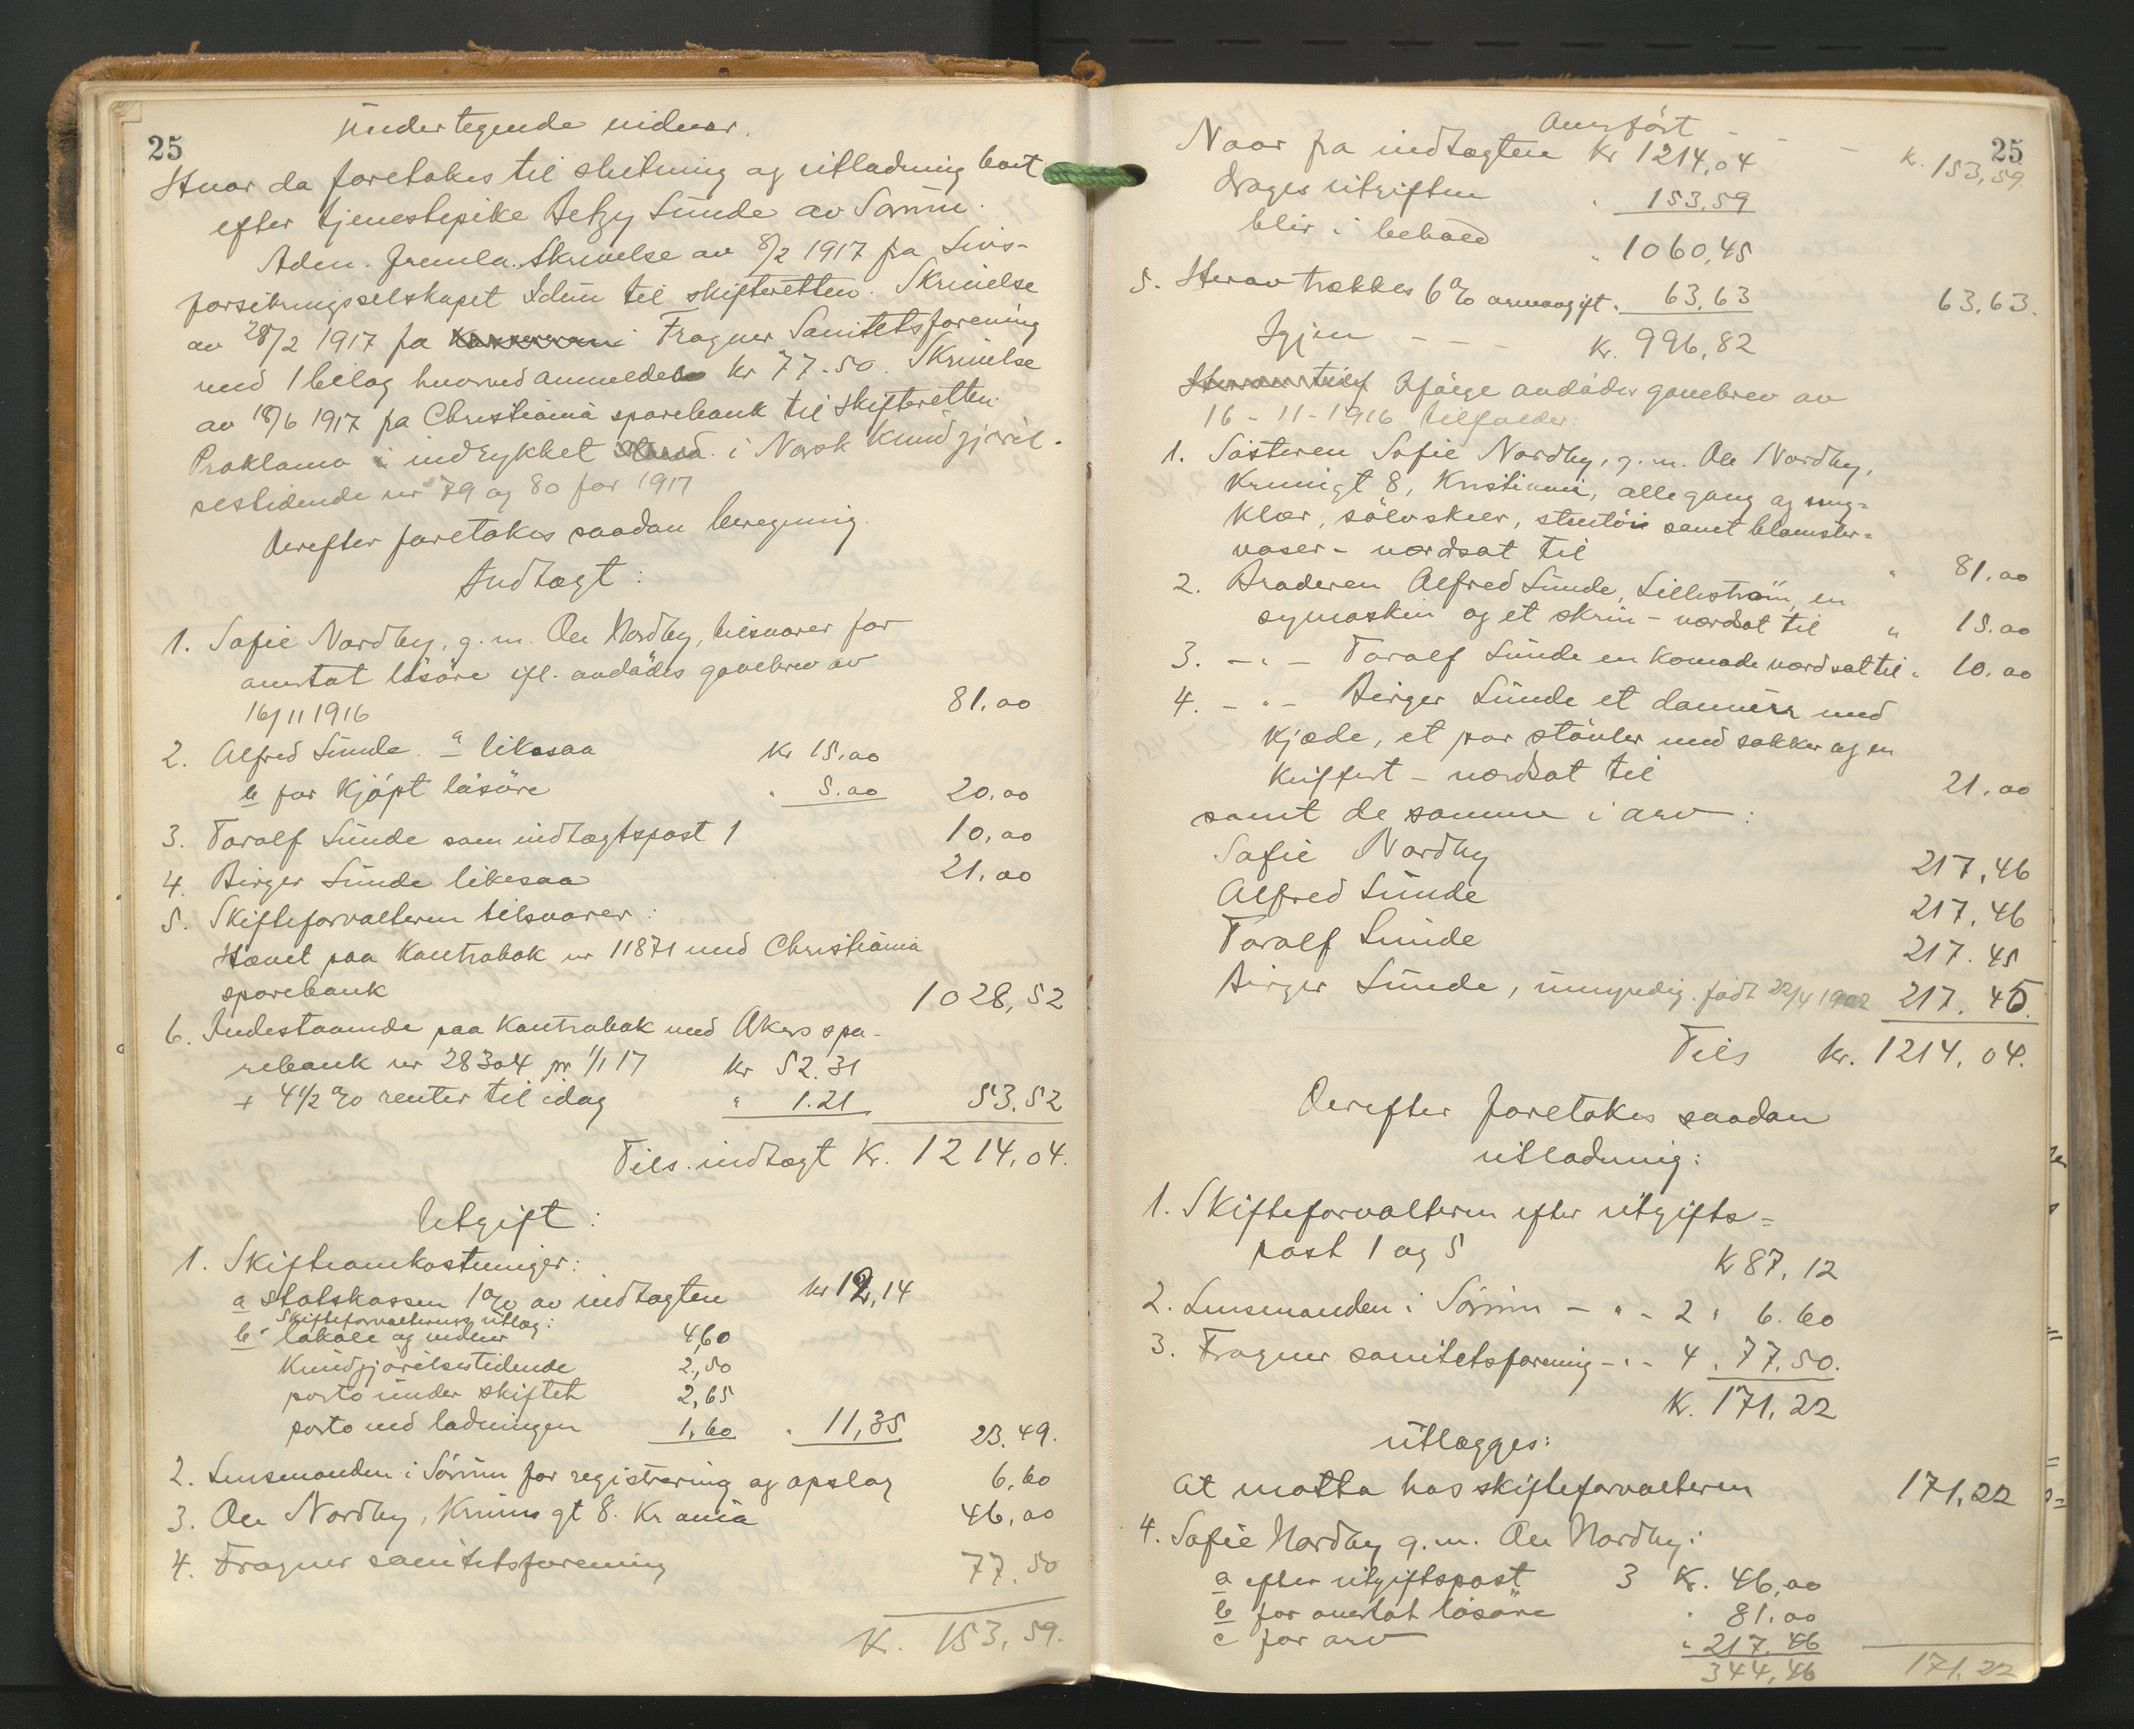 25
undertegnede vidner.
Hvor da foretokes til slutning og utlodning boet
efter tjenestepike Betzy Sunde av Sørum.
Adm. fremla. Skrivelse av 8/2 1917 fra Livs-
forsikringsselskapet Idun til skifteretten. Skrivelse
av 28/2 1917 fra Frogner Sanitetsforening
med 1 bilag hvorved anmeldes kr 77.50. Skrivelse
av 18/6 1917 fra Christiania sparebank til skifteretten.
Proklama indrykket i Norsk Kundgjørel-
sestidende nr 79 og 80 for 1917
Derefter foretokes saadan beregning.
Indtægt:
1. Sofie Nordby, g.m. Ole Nordby, tilsvarer for
overtat løsøre ifl. avdødes gavebrev av
16/11 1916 81.00
2. Alfred Sunde. a likesaa kr 15.00
b for kjøpt løsøre " 5.00 20.00
3. Toralf Sunde som indtægtspost 1 10.00
4. Birger Sunde likesaa 21.00
5. Skifteforvalteren tilsvarer:
Hævet paa Kontrabok nr 11871 med Christiania
sparebank 1028,52
6. Indestaaende paa kontrabok med Akers spa-
rebank nr 28304 pr 1/1 17 kr 52.31
+ 4 1/2 % renter til idag " 1.21 53.52
Tils. indtægt Kr. 1214,04.
Utgift:
1. Skifteomkostninger:
a Statskassen 1 % av indtægten kr 12,14
Skifteforvalterens utlæg:
b lokale og vidner 4,60
Kundgjørelsestidende 2,50
porto under skiftet 2,65
porto ved lodningen 1,60 " 11,35 23.49.
2. Lensmanden i Sørum for registrering og opslag 6,60
3. Ole Nordby, Krums gt 8. Kr ania 46,00
4. Frogner sanitetsforening 77.50
Kr. 153,59.
Overført - - - k. 153,59.
25
Naar fra indtægten Kr 1214,04
drages utgiften " 153,59
blir i behold " 1060,45
5. Herav trækkes 6 % arveavgift. 63,63 63,63.
Igjen - - - Kr. 996,82
Ifølge avdødes gavebrev av
16-11-1916 tilfalder:
1. Søsteren Sofie Nordby, g.m. Ole Nordby,
Krumsgt 8, Kristiania, alle gang og seng=
klær, sølvskeer, stentøi samt blomster=
vaser - værdsat til " 81.00
2. Broderen Alfred Sunde, Lillestrøm, en
symaskin og et skrin - værdsat til " 15.00
3. -"- Toralf Sunde en komode værdsat til " 10.00
4. -"- Birger Sunde et dameur med
kjæde, et par støvler med sokker og en
kuffert - værdsat til 21.00
samt de samme i arv:
Sofie Nordby 217,46
Alfred Sunde 217.46
Toralf Sunde 217.45
Birger Sunde, umyndig. født 22/4 1902 217.45.
Tils kr. 1214,04.
Derefter foretokes saadan
utlodning:
1. Skifteforvalteren efter utgifts=
post 1 og 5 Kr 87,12
2. Lensmanden i Sørum - " - 2 " 6.60
3. Frogner sanitetsforening - " - 4 " 77.50.
Kr. 171,22
utlægges:
At motta hos skifteforvalteren 171,22
4. Sofie Nordby g.m. Ole Nordby:
a efter utgiftspost 3 Kr. 46,00
b for overtat løsøre " 81.00
c for arv " 217.46
344,46 171,22